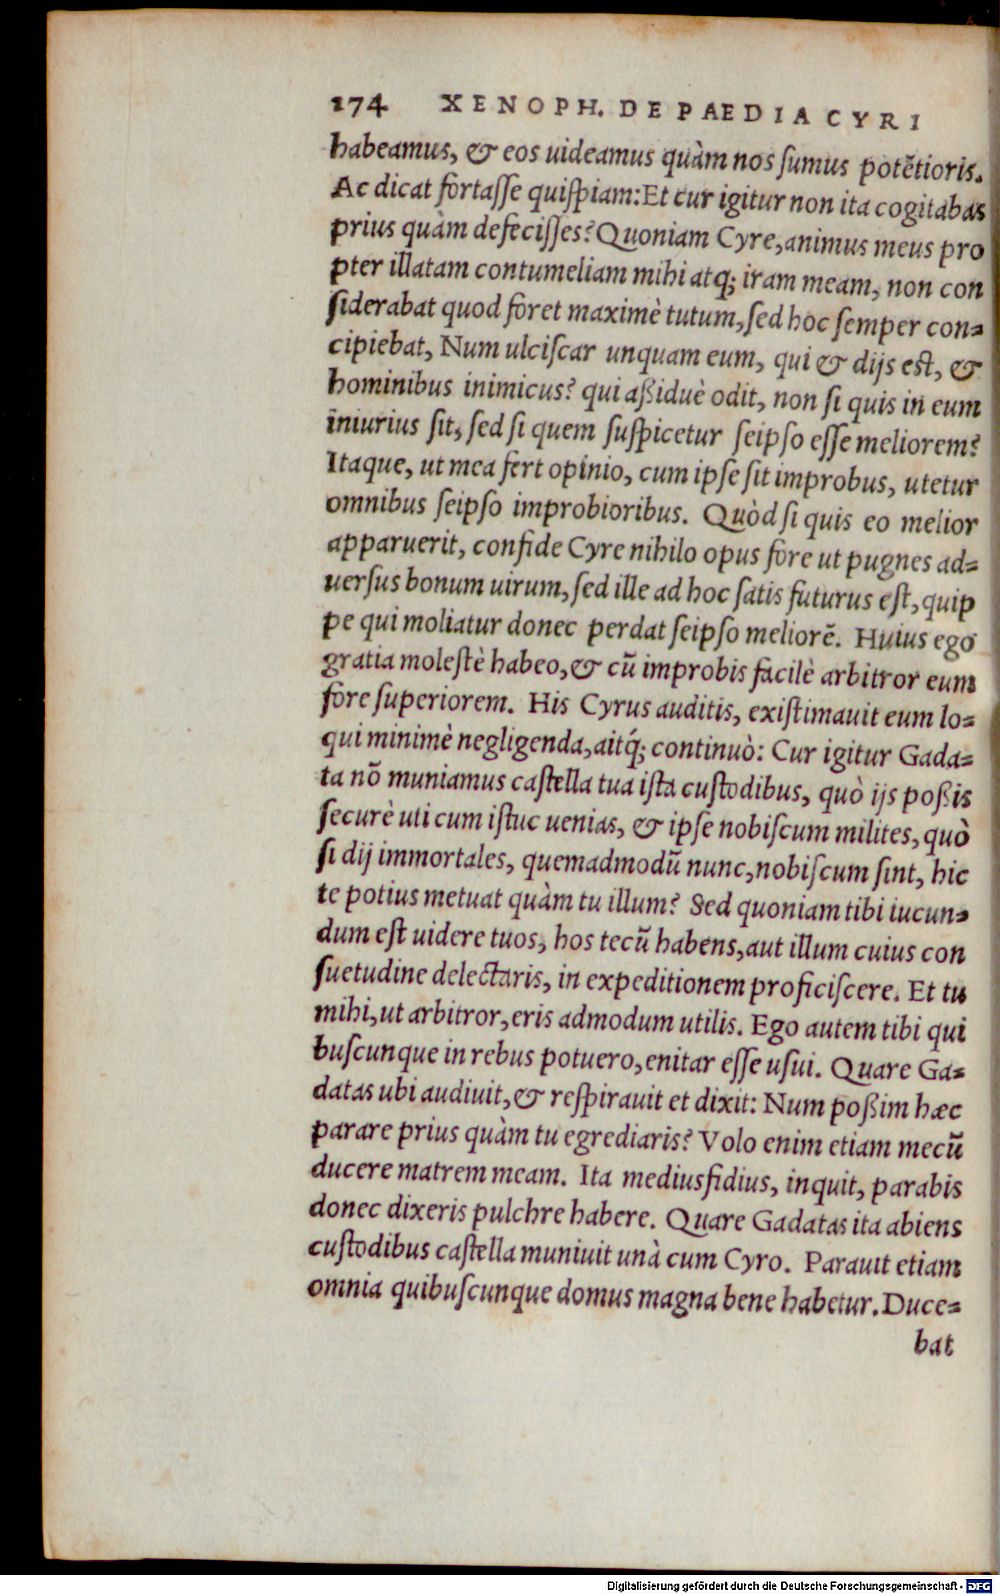 174 XENOPH. DE PAEDIA CYRI
habeamus, & eos uideamus quàm nos ſumus potẽtioris.
Ac dicat fortaſſe quiſpiam: Et cur igitur non ita cogitabas
prius quàm defeciſſes? Quoniam Cyre, animus meus pro
pter illatam contumeliam mihi atq; iram meam, non con
ſiderabat quod foret maximè tutum, ſed hoc ſemper con-
cipiebat, Num ulciſcar unquam eum, qui & dijs eſt, &
hominibus inimicus? qui aßiduè odit, non ſi quis in eum
iniurius ſit, ſed ſi quem ſuſpicetur ſeipſo eſſe meliorem?
Itaque, ut mea fert opinio, cum ipſe ſit improbus, utetur
omnibus ſeipſo improbioribus. Quòd ſi quis eo melior
apparuerit, confide Cyre nihilo opus fore ut pugnes ad-
uerſus bonum uirum, ſed ille ad hoc ſatis futurus eſt, quip
pe qui moliatur donec perdat ſeipſo meliorẽ. Huius ego
gratia moleſtè habeo, & cũ improbis facilè arbitror eum
fore ſuperiorem. His Cyrus auditis, exiſtimauit eum lo-
qui minimè negligenda, aitq́; continuò: Cur igitur Gada-
ta nõ muniamus caſtella tua iſta cuſtodibus, quò ijs poßis
ſecurè uti cum iſtuc uenias, & ipſe nobiſcum milites, quò
ſi dij immortales, quemadmodũ nunc, nobiſcum ſint, hic
te potius metuat quàm tu illum? Sed quoniam tibi iucun-
dum eſt uidere tuos, hos tecũ habens, aut illum cuius con
ſuetudine delectaris, in expeditionem proficiſcere. Et tu
mihi, ut arbitror, eris admodum utilis. Ego autem tibi qui
buſcunque in rebus potuero, enitar eſſe uſui. Quare Ga-
datas ubi audiuit, & reſpirauit et dixit: Num poßim hæc
parare prius quàm tu egrediaris? Volo enim etiam mecũ
ducere matrem meam. Ita mediusfidius, inquit, parabis
donec dixeris pulchre habere. Quare Gadatas ita abiens
cuſtodibus caſtella muniuit unà cum Cyro. Parauit etiam
omnia quibuſcunque domus magna bene habetur. Duce-
bat
Digitalisierung gefördert durch die Deutsche Forschungsgemeinschaft - DFG